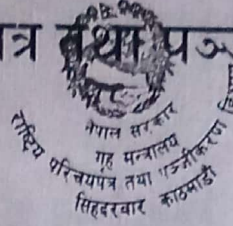 त्र तथा पञ्
नेपाल सरकार
गृह मन्त्रालय
राष्ट्रिय परिचयपत्र तथा पञ्जीकरण
सिंहदरबार काठमाडौं